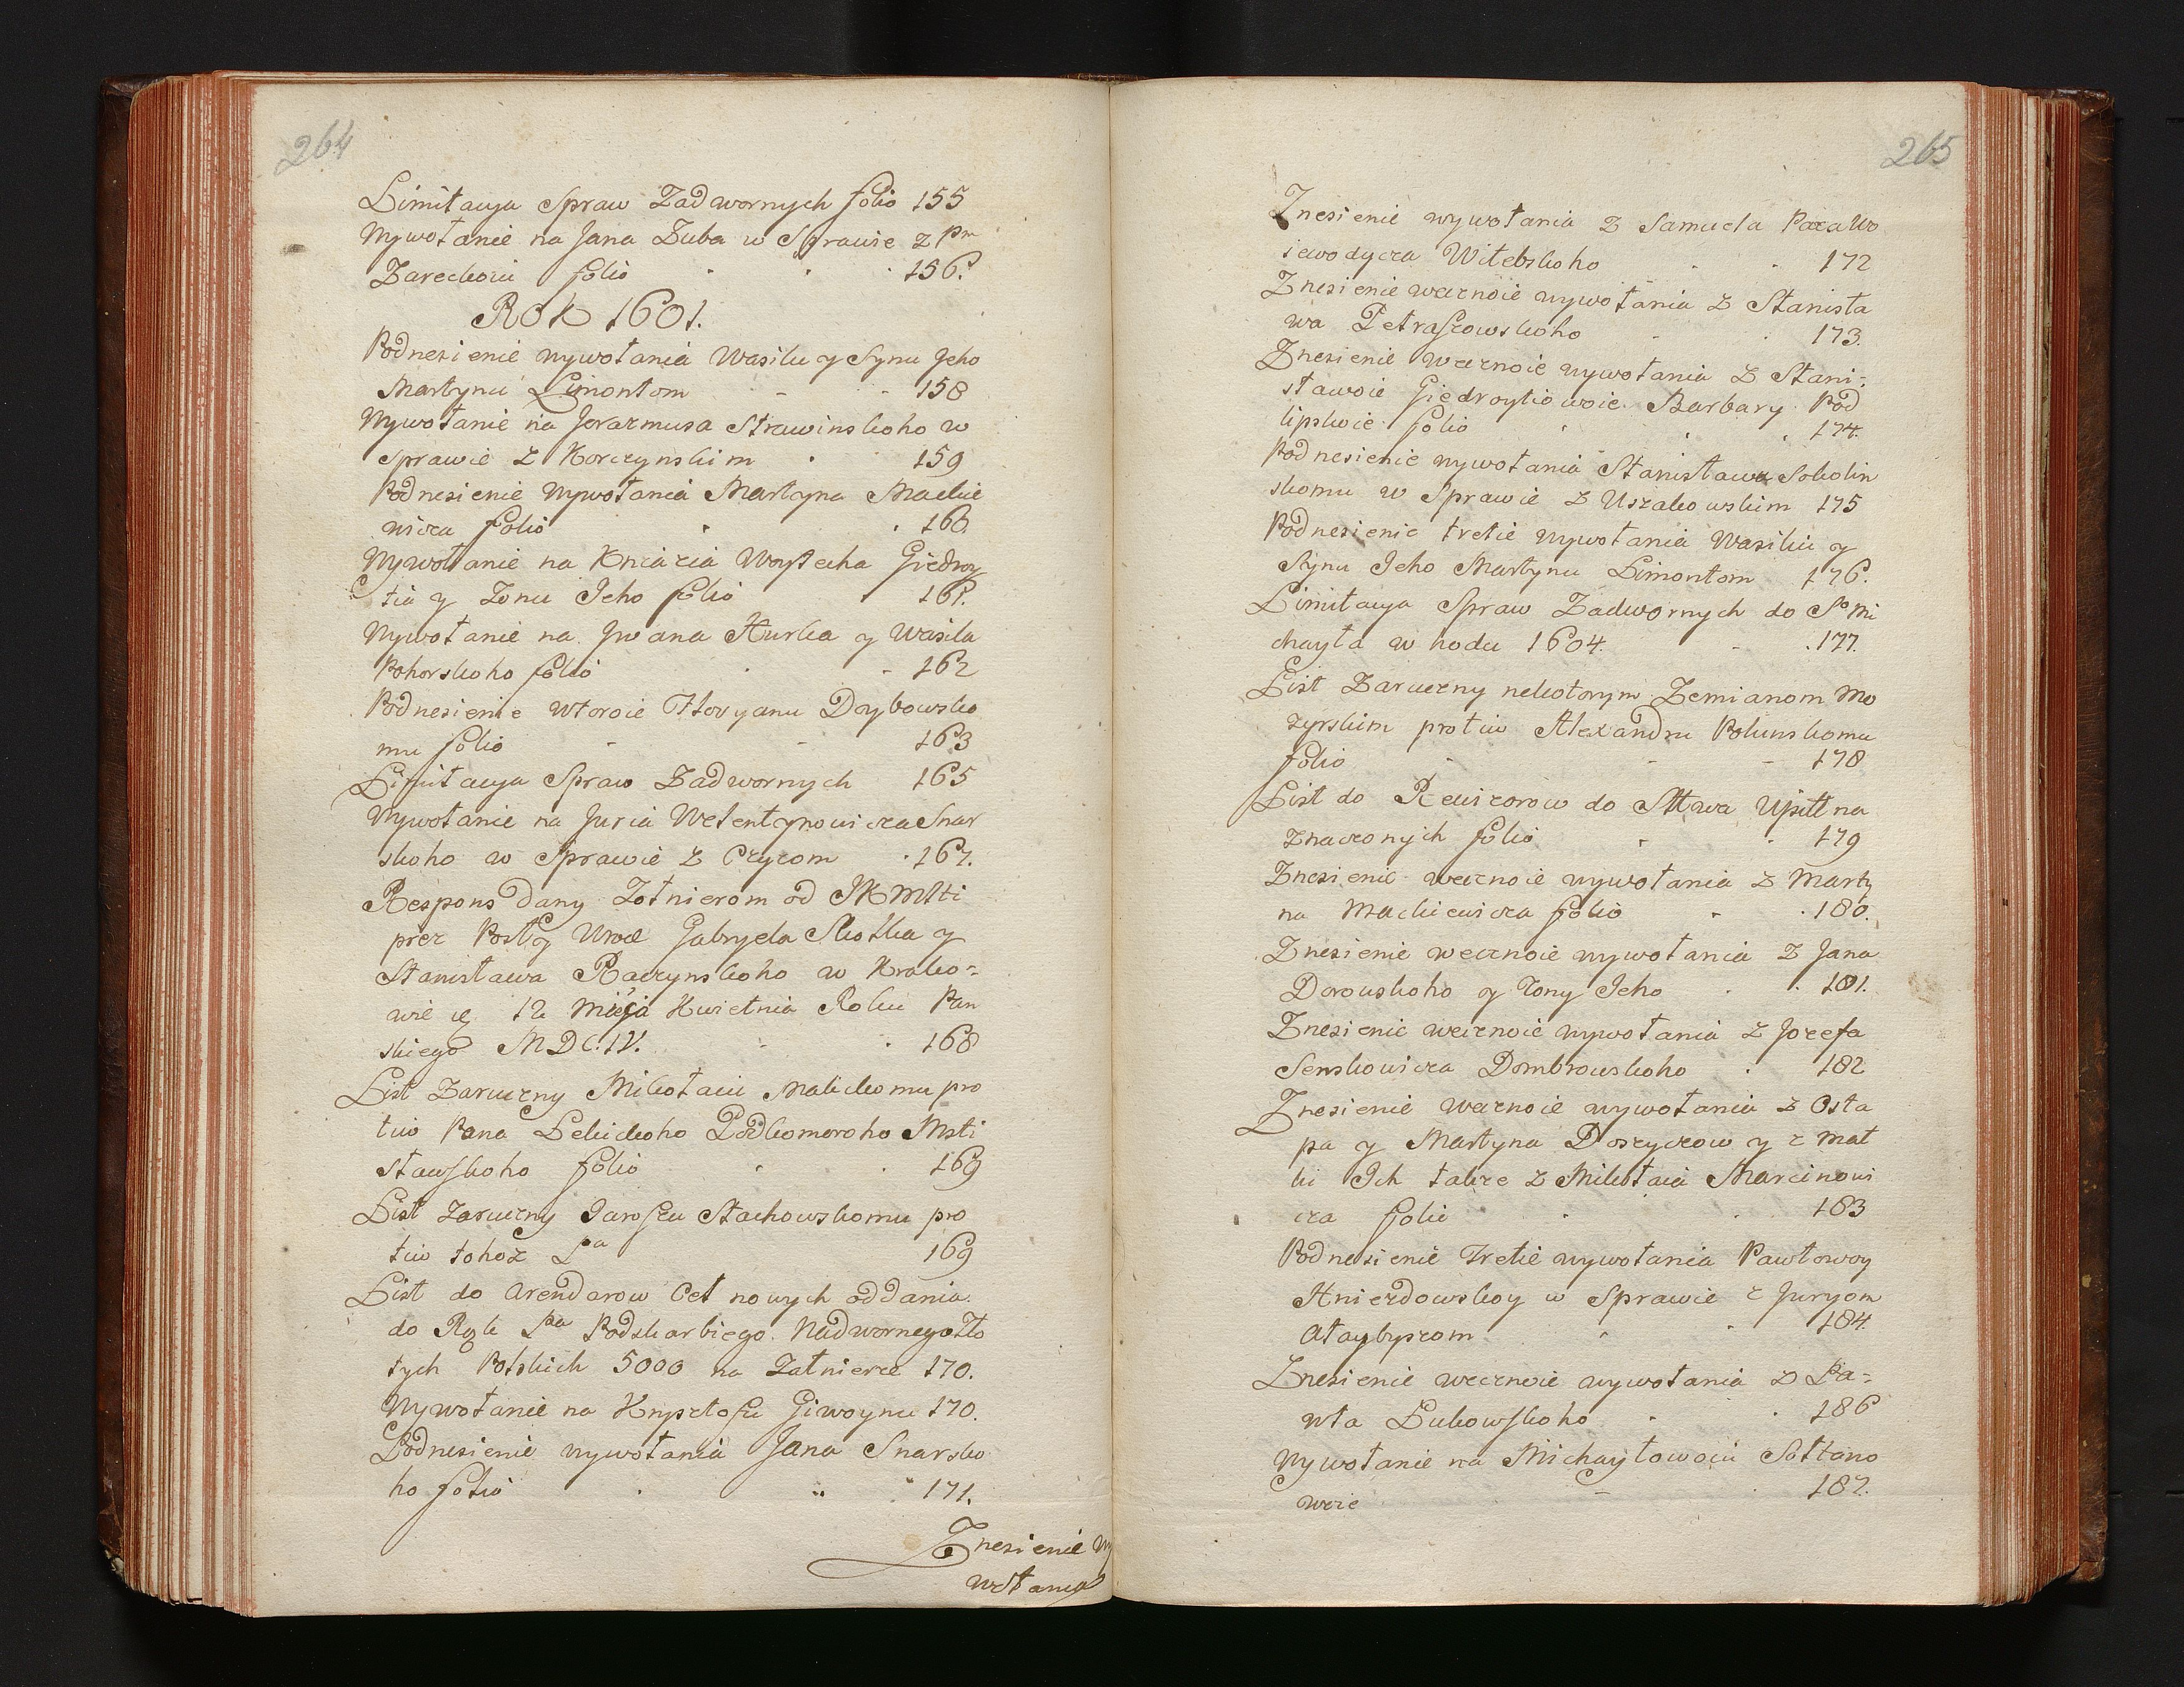 264
Limitacyja Spraw Zadwornych folio 155
Wywołanie na Jana Zuba w Sprawie z Pm
Zareckoiu folio 156.
Rok 1601.
Podnesienie wywołania Wasilu y Synu Jeho
Martynu Limontom 158
Wywołanie na Jerazmusa Strawinskoho w
Sprawie z Korczynskim 159
Podnesienie Wywołania Martyna Mackie
wicza folio 160
Wywołanie na Kniazia Woytecha Giedroy
tia y Zonu Jeho folio 161.
Wywołanie na Iwana Hurka y Wasila
Pohorskoho folio 162
Podnesienie Wtoroie Floryanu Dzybowsko
mu folio 163
Limitacyja Spraw Zadwornych 165
Wywołanie na Juria Welentynowicza Snar
skoho w Sprawie z Czyzom 167.
Respons dany Zołnierom od JKMłti
prez Posły Urod Gabryela Skotka y
Stanisława Raczynskoho w Krako=
wie 12 Kwietnia Roku Pan
skiego MDC.IV. 168
List Zaruczny Mikołaiu Malickomu pro
tiw Pana Lekickoho Podkomoroho Msti
sławskoho folio 169
List zaruczny Jaroszu Stachowskomu pro
tiw tohoż Pa 169
List do Arendarow Cel nowych oddania
do Rąk Pa Podskarbiego Nadwornego Zło
tych Polskich 5000 na Zołnierze 170.
Wywołanie na Krysztofu Giwoynu 170.
Podnesienie wywołania Jana Snarsko
ho folio 171.
Znesienie wy
wołania
265
Znesienie wywołania z Samuela Paca Wo
iewodycza Witebskoho 172
Znesienie wecznoie wywołania z Stanisła
wa Petraszowskoho 173.
Znesienie wecznoie wywołania z Stani=
sławoie Giedroytiowoie Barbary Pod
lipskoie folio 174.
Podnesienie wywołania Stanisławu Sokolin
skomu w Sprawie z Uszakowskim 175
Podnesienie tretie wywołania Wasiliu y
Synu Jeho Martynu Limontom 176.
Limitacyja Spraw Zadwornych do So Mi
chayła w hodu 1604. 177.
List Zaruczny nekotorym Zemianom Mo
zyrskim protiw Alexandru Polunskomu
folio 178
List do Rewizorow do Sttwa Upitt na
znaczonych folio 179
Znesienie wecznoie wywołania z Marty
na Mackiewicza folio 180.
Znesienie wecznoie wywołania z Jana
Dorowskoho y Zony Jeho 181.
Znesienie wecznoie wywołania z Jozefa
Senkowicza Dombrowskoho 182
Znesienie wecznoie wywołania z Osta
pa y Martyna Doszyczow y z mat
ki Ich takze z Mikołaia Marcinowi
cza folio 183
Podnesienie Tretie wywołania Pawłowoy
Hniezdowskoy w Sprawie z Juryom
184.
Znesienie wecznoie wywołania z Pa=
wła Lukowskoho 186
Wywołanie na Michayłowoiu Sołtano
wcie 187.